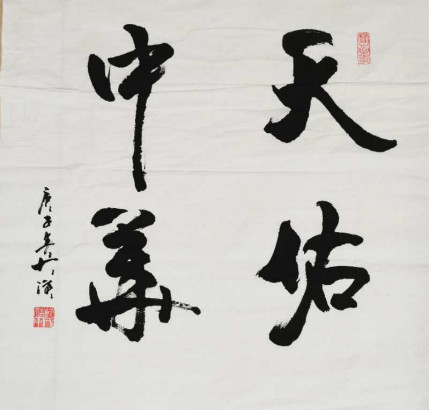 天佑
中華
庚子